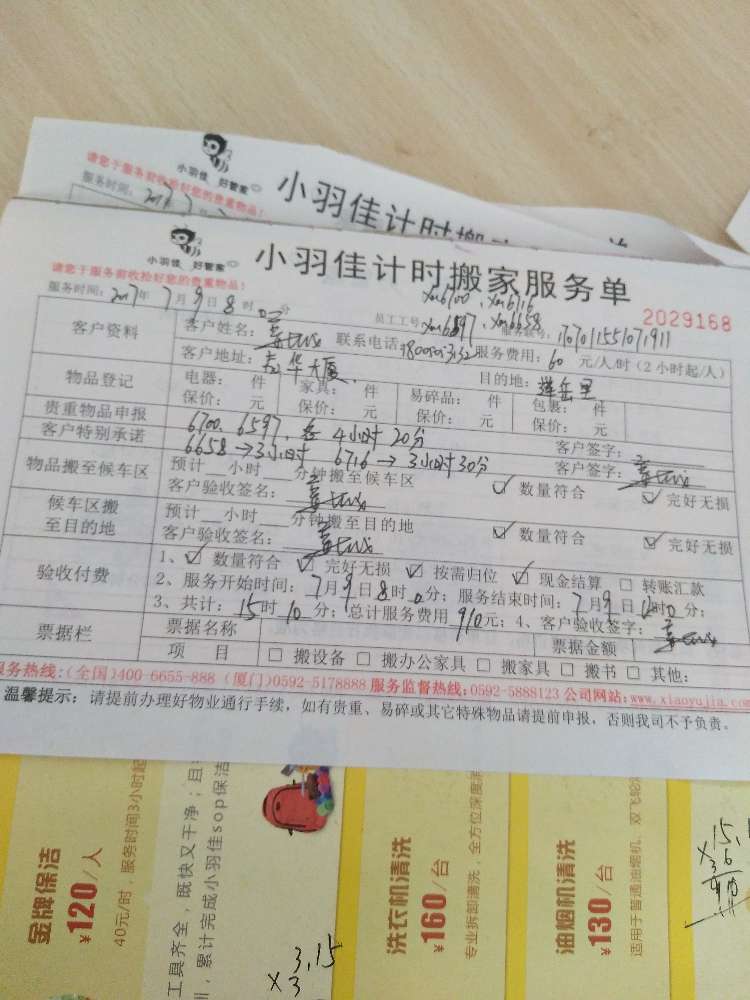 小羽佳 好管家
请您于服务前收捡好您的贵重物品!
服务时间:
小羽佳计时搬
小羽佳 好管家
小羽佳计时搬家服务单
请您于服务前收捡好您的贵重物品!
Xm6700、Xm6716
2029168
服务时间:2017年7月9日8时0分
员工工号:Xm6597、Xm6658
服务联号:170701155107191
客户资料
客户姓名:
联系电话:
服务费用:60元/人/时(2小时起/人)
客户地址: 华大厦
目的地:莲岳里
物品登记
电器: 件 家具: 件 易碎品: 件 包裹: 件
保价: 元 保价: 元 保价: 元 保价: 元
贵重物品申报
6700、6597、各4小时20分
客户签字:
客户特别承诺
6658→3小时 6716→3小时30分
客户签字:
物品搬至候车区
预计 小时 分钟搬至候车区
客户验收签名:
数量符合
完好无损
候车区搬
至目的地
预计 小时 分钟搬至目的地
客户验收签名:
数量符合
完好无损
验收付费
1、 数量符合 完好无损 按需归位 现金结算 转账汇款
2、服务开始时间:7月9日8时0分;服务结束时间:7月9日 时 分;
3、共计:15时10分;总计服务费用910元;4、客户验收签字:
票据栏
票据名称
票据金额
项 目
搬设备 搬办公家具 搬家具 搬书 其他:
服务热线:(全国)400-6655-888 (厦门)0592-5178888 服务监督热线:0592-5888123 公司网站:www.xiaoyujia.com
温馨提示:请提前办理好物业通行手续,如有贵重、易碎或其它特殊物品请提前申报,否则我司不予负责。
金牌保洁
¥120/人
40元/时,服务时间3小时起
工具齐全,既快又干净;且
累计完成小羽佳sop保洁
3.15
×3
洗衣机清洗
¥160/台
专业拆卸清洗,全方位深度
油烟机清洗
¥130/台
适用于普通油烟机、双飞轮